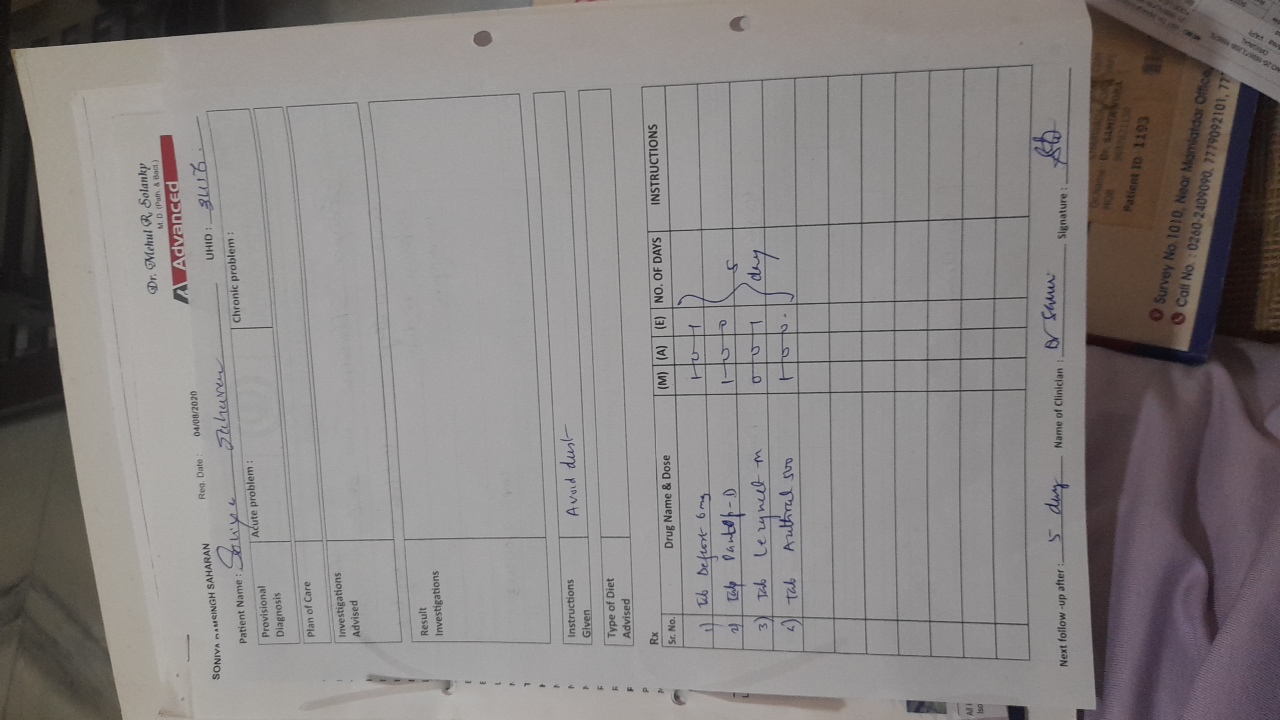 Dr. Mehul R. Solanky
M. D. (Path. & Bact.)
Advanced
SONIYA RAMSINGH SAHARAN
Reg. Date : 04/08/2020
Patient Name : Soniya Saharan
UHID :
Provisional Diagnosis
Acute problem :
Chronic problem :
Plan of Care
Investigations
Advised
Result
Investigations
Instructions
Given
Avoid dust
Type of Diet
Advised
Rx
Sr. No. Drug Name & Dose (M) (A) (E) NO. OF DAYS INSTRUCTIONS
1) Tab Defcort 6mg 1-0-1
2) Tab Pantop-D 1-0-0
3) Tab M 0 0 1
4) Tab 500 1-0-0
5
day
Next follow -up after : 5 day Name of Clinician : Dr Signature :
Patient ID 1193
Survey No.1010, Near Mamlatdar Office,
Call No. : 0260-2409090, 7779092101, 77